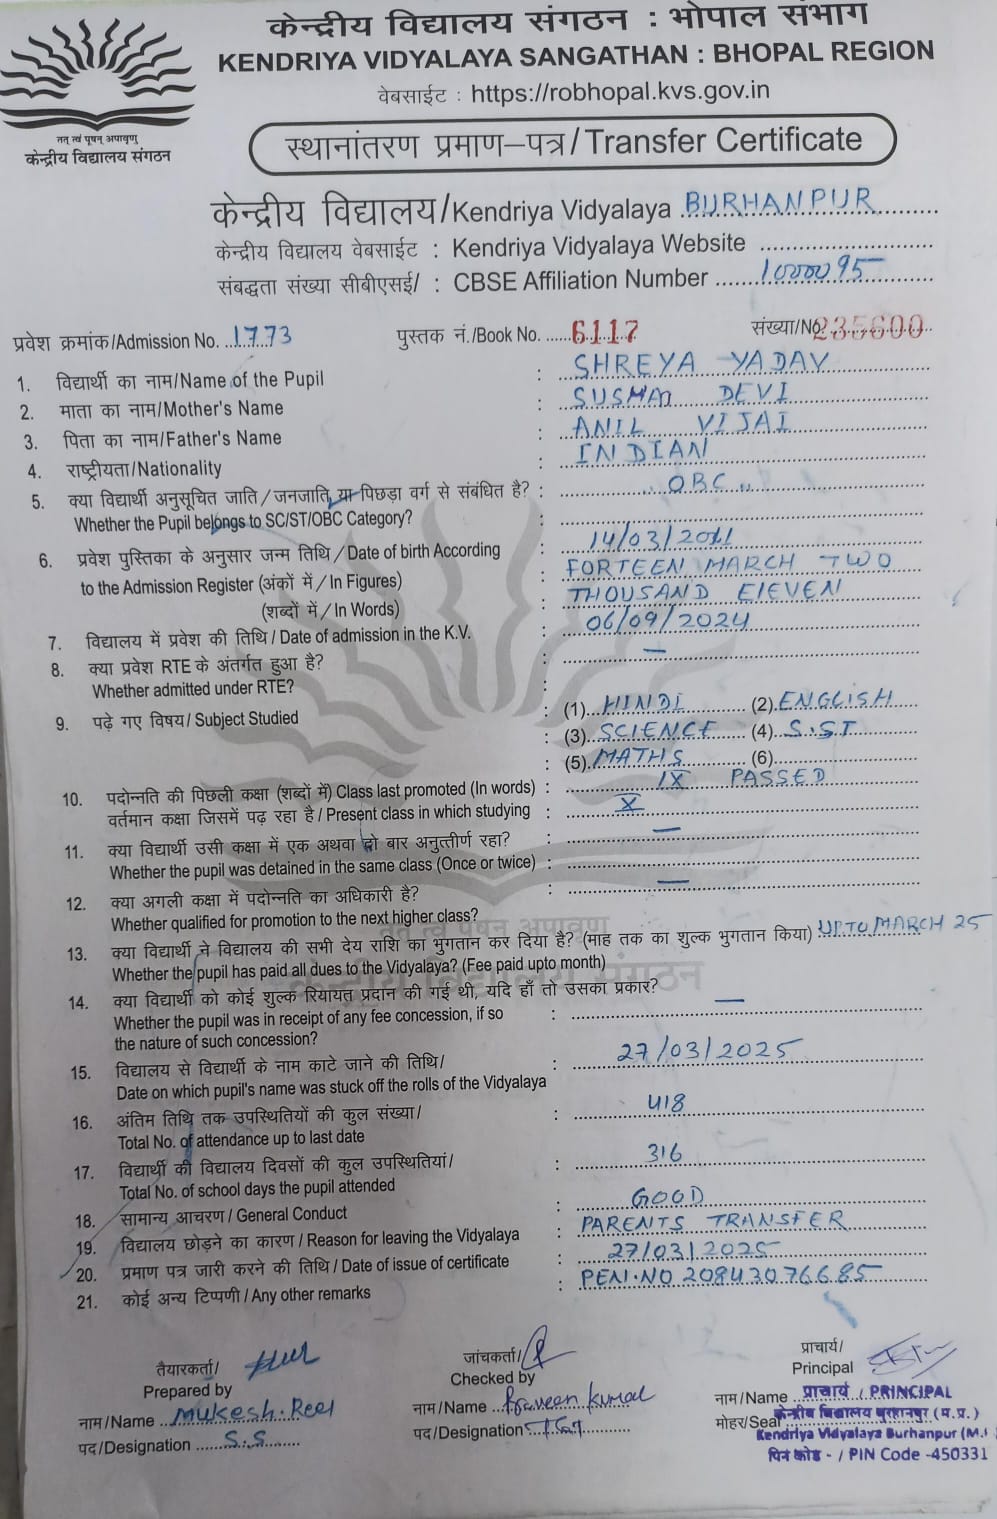 केन्द्रीय विद्यालय संगठन : भोपाल संभाग
KENDRIYA VIDYALAYA SANGATHAN : BHOPAL REGION
वेबसाईट : https://robhopal.kvs.gov.in
तत् त्वं पूषन् अपावृणु
केन्द्रीय विद्यालय संगठन
स्थानांतरण प्रमाण-पत्र/Transfer Certificate
केन्द्रीय विद्यालय/Kendriya Vidyalaya BURHANPUR
केन्द्रीय विद्यालय वेबसाईट : Kendriya Vidyalaya Website
संबद्धता संख्या सीबीएसई/ : CBSE Affiliation Number 1000095
प्रवेश क्रमांक/Admission No. 1773 पुस्तक नं./Book No. 6117 संख्या/No. 235600
1. विद्यार्थी का नाम/Name of the Pupil : SHREYA YADAV
2. माता का नाम/Mother's Name : SUSHMA DEVI
3. पिता का नाम/Father's Name : ANIL VIJAI
4. राष्ट्रीयता/Nationality : INDIAN
5. क्या विद्यार्थी अनुसूचित जाति/जनजाति, या पिछड़ा वर्ग से संबंधित है? : OBC
Whether the Pupil belongs to SC/ST/OBC Category? :
6. प्रवेश पुस्तिका के अनुसार जन्म तिथि/Date of birth According : 14/03/2011
to the Admission Register (अंकों में/In Figures) : FORTEEN MARCH TWO
(शब्दों में/In Words) : THOUSAND ElEVEN
7. विद्यालय में प्रवेश की तिथि/Date of admission in the K.V. : 06/09/2024
8. क्या प्रवेश RTE के अंतर्गत हुआ है? : —
Whether admitted under RTE? :
9. पढ़े गए विषय/Subject Studied : (1) HINDI (2) ENGLISH
: (3) SCIENCE (4) S.ST
: (5) MATHS (6)
10. पदोन्नति की पिछली कक्षा (शब्दों में) Class last promoted (In words) : IX PASSED
वर्तमान कक्षा जिसमें पढ़ रहा है/Present class in which studying : X
11. क्या विद्यार्थी उसी कक्षा में एक अथवा दो बार अनुत्तीर्ण रहा? : —
Whether the pupil was detained in the same class (Once or twice) :
12. क्या अगली कक्षा में पदोन्नति का अधिकारी है? : —
Whether qualified for promotion to the next higher class?
13. क्या विद्यार्थी ने विद्यालय की सभी देय राशि का भुगतान कर दिया है? (माह तक का शुल्क भुगतान किया) UPTO MARCH 25
Whether the pupil has paid all dues to the Vidyalaya? (Fee paid upto month)
14. क्या विद्यार्थी को कोई शुल्क रियायत प्रदान की गई थी, यदि हाँ तो उसका प्रकार? —
Whether the pupil was in receipt of any fee concession, if so :
the nature of such concession?
15. विद्यालय से विद्यार्थी के नाम काटे जाने की तिथि/ : 27/03/2025
Date on which pupil's name was stuck off the rolls of the Vidyalaya
16. अंतिम तिथि तक उपस्थितियों की कुल संख्या/ : 418
Total No. of attendance up to last date
17. विद्यार्थी की विद्यालय दिवसों की कुल उपस्थितियां/ : 316
Total No. of school days the pupil attended
18. सामान्य आचरण/General Conduct : GOOD
19. विद्यालय छोड़ने का कारण/Reason for leaving the Vidyalaya : PARENTS TRANSFER
20. प्रमाण पत्र जारी करने की तिथि/Date of issue of certificate : 27/03/2025
21. कोई अन्य टिप्पणी/Any other remarks : PEN.NO 20843076685
तैयारकर्ता/ जांचकर्ता/ प्राचार्य/
Prepared by Checked by Principal
नाम/Name Mukesh नाम/Name Praveen Kumar नाम/Name प्राचार्य / PRINCIPAL
पद/Designation S.S पद/Designation मोहर/Seal केन्द्रीय विद्यालय बुरहानपुर (म.प्र.)
Kendriya Vidyalaya Burhanpur (M.
पिन कोड - / PIN Code -450331